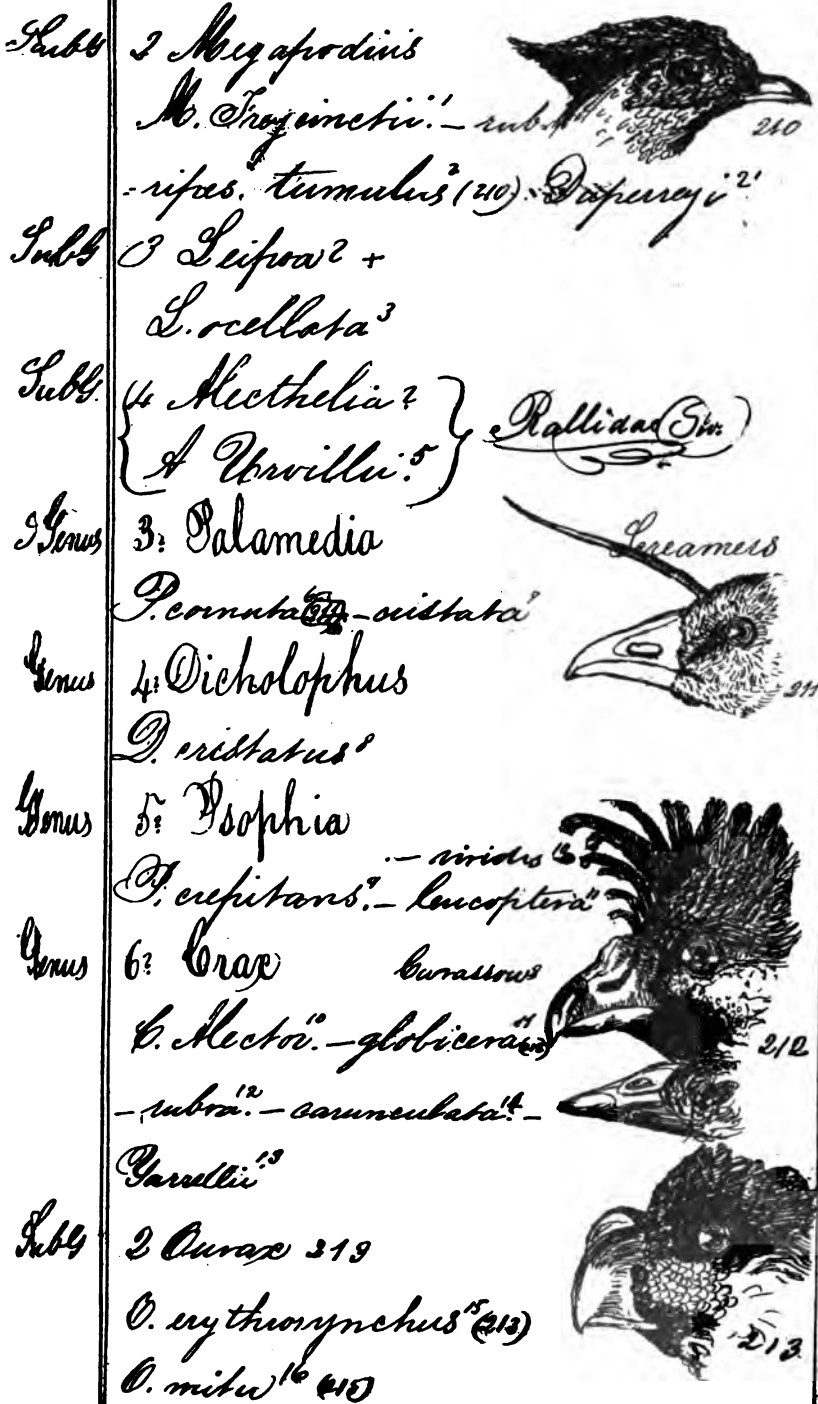 SubG 2 Megapodius
M. Freycinetii.¹ – rub-
-ripes. tumulus² (210). Duperreyi²' 210
SubG 3 Leipoa² +
L. ocellata³
SubG. 4 Alecthelia?
A Urvillii.⁵ Rallidae Sw:
Genus 3: Palamedia Screamers
P. cornuta – cristata⁷
211
Genus 4: Dicholophus
D. cristatus⁸
Genus 5: Psophia
– viridis
P. crepitans.⁹ – leucoptera¹¹
Genus 6? Crax Curassows
C. Alector.¹⁰ – globicera¹¹ 212
– rubra.¹² – carunculata.¹⁴ –
Yarrellii¹³
SubG 2 Ourax 219
O. erythrorynchus¹⁵ (213) 213
O. mitu¹⁶